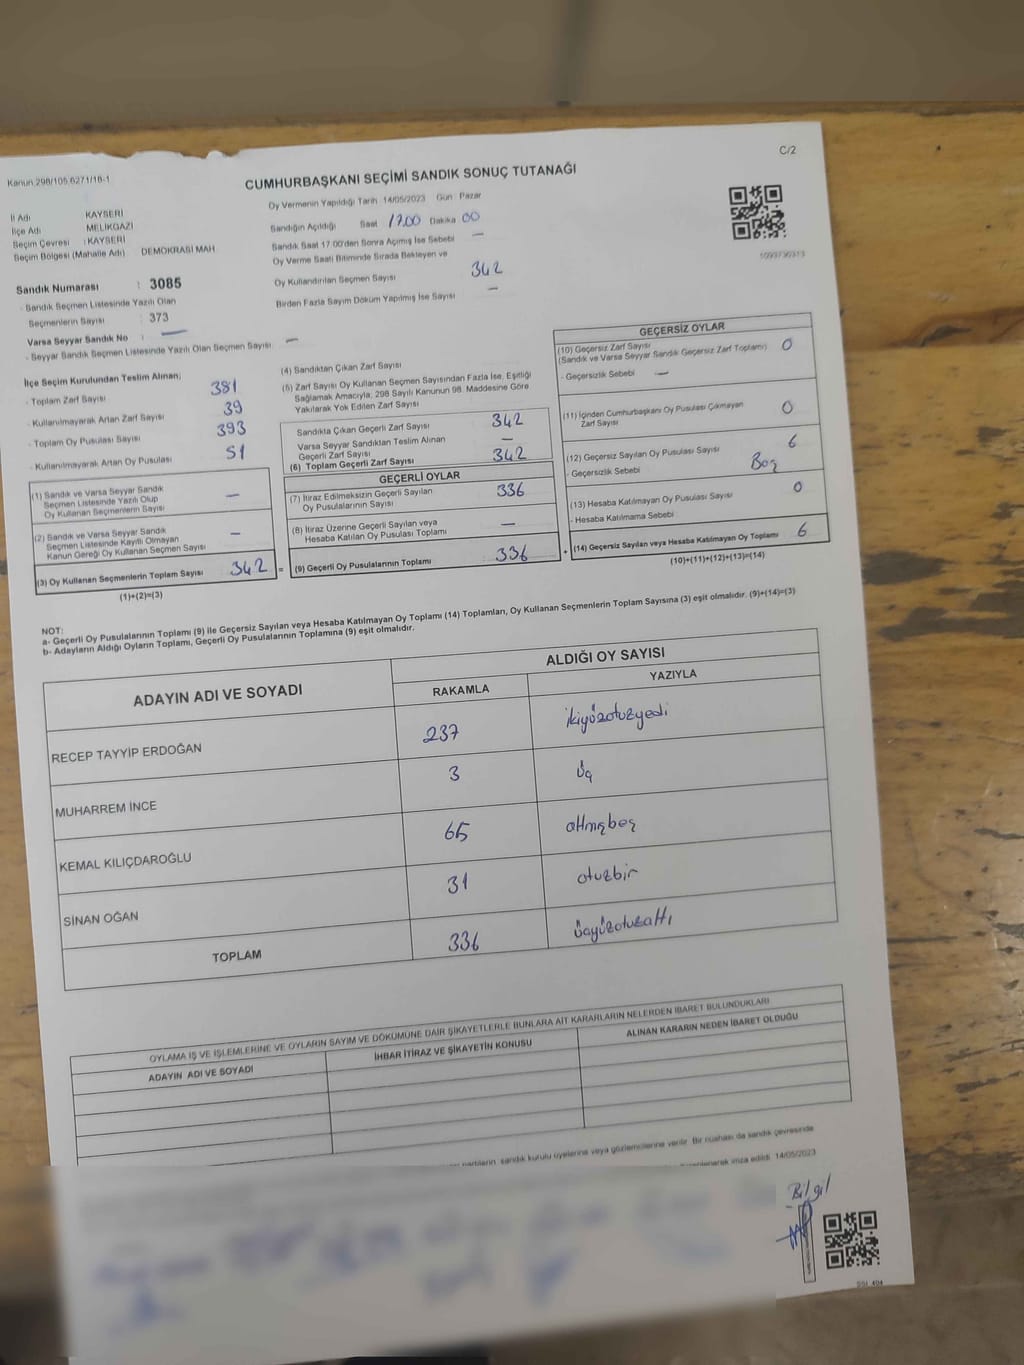 C/2
Kanun 298/105,6271/18-1
CUMHURBAŞKANI SEÇİMİ SANDIK SONUÇ TUTANAĞI
Oy Vermenin Yapıldığı Tarih 14/05/2023 Gün Pazar
İl Adı KAYSERİ
İlçe Adı MELİKGAZİ
Seçim Çevresi : KAYSERİ
Seçim Bölgesi (Mahalle Adı) DEMOKRASİ MAH.
Sandığın Açıldığı Saat 17.00 Dakika 00
Sandık Saat 17.00'den Sonra Açılmış İse Sebebi —
Oy Verme Saati Bitiminde Sırada Bekleyen ve
Oy Kullandırılan Seçmen Sayısı 342
Birden Fazla Sayım Döküm Yapılmış İse Sayısı —
1093730313
Sandık Numarası : 3085
- Sandık Seçmen Listesinde Yazılı Olan
Seçmenlerin Sayısı : 373
Varsa Seyyar Sandık No : —
- Seyyar Sandık Seçmen Listesinde Yazılı Olan Seçmen Sayısı —
İlçe Seçim Kurulundan Teslim Alınan;
- Toplam Zarf Sayısı 381
- Kullanılmayarak Artan Zarf Sayısı 39
- Toplam Oy Pusulası Sayısı 393
- Kullanılmayarak Artan Oy Pusulası 51
(1) Sandık ve Varsa Seyyar Sandık
Seçmen Listesinde Yazılı Olup
Oy Kullanan Seçmenlerin Sayısı —
(2) Sandık ve Varsa Seyyar Sandık
Seçmen Listesinde Kayıtlı Olmayan
Kanun Gereği Oy Kullanan Seçmen Sayısı —
(3) Oy Kullanan Seçmenlerin Toplam Sayısı 342 =
(1)+(2)=(3)
(4) Sandıktan Çıkan Zarf Sayısı
(5) Zarf Sayısı Oy Kullanan Seçmen Sayısından Fazla İse, Eşitliği
Sağlamak Amacıyla; 298 Sayılı Kanunun 98. Maddesine Göre
Yakılarak Yok Edilen Zarf Sayısı
Sandıkta Çıkan Geçerli Zarf Sayısı 342
Varsa Seyyar Sandıktan Teslim Alınan
Geçerli Zarf Sayısı —
(6) Toplam Geçerli Zarf Sayısı 342
GEÇERLİ OYLAR
(7) İtiraz Edilmeksizin Geçerli Sayılan
Oy Pusulalarının Sayısı 336
(8) İtiraz Üzerine Geçerli Sayılan veya
Hesaba Katılan Oy Pusulası Toplamı —
(9) Geçerli Oy Pusulalarının Toplamı 336 +
GEÇERSİZ OYLAR
(10) Geçersiz Zarf Sayısı
(Sandık ve Varsa Seyyar Sandık Geçersiz Zarf Toplamı) 0
- Geçersizlik Sebebi —
(11) İçinden Cumhurbaşkanı Oy Pusulası Çıkmayan
Zarf Sayısı 0
(12) Geçersiz Sayılan Oy Pusulası Sayısı 6
- Geçersizlik Sebebi Boş
(13) Hesaba Katılmayan Oy Pusulası Sayısı 0
- Hesaba Katılmama Sebebi
(14) Geçersiz Sayılan veya Hesaba Katılmayan Oy Toplamı 6
(10)+(11)+(12)+(13)=(14)
NOT:
a- Geçerli Oy Pusulalarının Toplamı (9) ile Geçersiz Sayılan veya Hesaba Katılmayan Oy Toplamı (14) Toplamları, Oy Kullanan Seçmenlerin Toplam Sayısına (3) eşit olmalıdır. (9)+(14)=(3)
b- Adayların Aldığı Oyların Toplamı, Geçerli Oy Pusulalarının Toplamına (9) eşit olmalıdır.
ADAYIN ADI VE SOYADI ALDIĞI OY SAYISI
RAKAMLA YAZIYLA
RECEP TAYYİP ERDOĞAN 237 ikiyüzotuzyedi
MUHARREM İNCE 3 üç
KEMAL KILIÇDAROĞLU 65 altmışbeş
SİNAN OĞAN 31 otuzbir
TOPLAM 336 üçyüzotuzaltı
OYLAMA İŞ VE İŞLEMLERİNE VE OYLARIN SAYIM VE DÖKÜMÜNE DAİR ŞİKAYETLERLE BUNLARA AİT KARARLARIN NELERDEN İBARET BULUNDUKLARI
ADAYIN ADI VE SOYADI İHBAR İTİRAZ VE ŞİKAYETİN KONUSU ALINAN KARARIN NEDEN İBARET OLDUĞU
partilerin sandık kurulu üyelerine veya gözlemcilerine verilir. Bir nüshası da sandık çevresinde
imza edildi. 14/05/2023
Bilgil